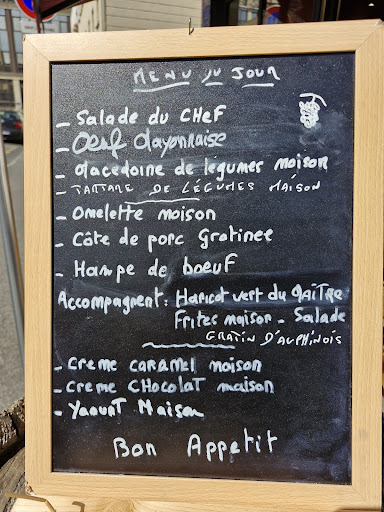 MENU DU JOUR
- Salade du CHeF
- Oeuf Mayonnaise
- Macedoine de légumes maison
- TARTARE DE LÉGUMES MAISON
- Omelette maison
- Côte de porc Gratinee
- Hampe de boeuf
Accompagnent : Haricot vert du MAÎTRE
Frites maison - Salade
GRATIN D'AUPHINOIS
- Creme CARAMEL maison
- Creme CHocolat maison
- Yaourt Maison
Bon Appetit